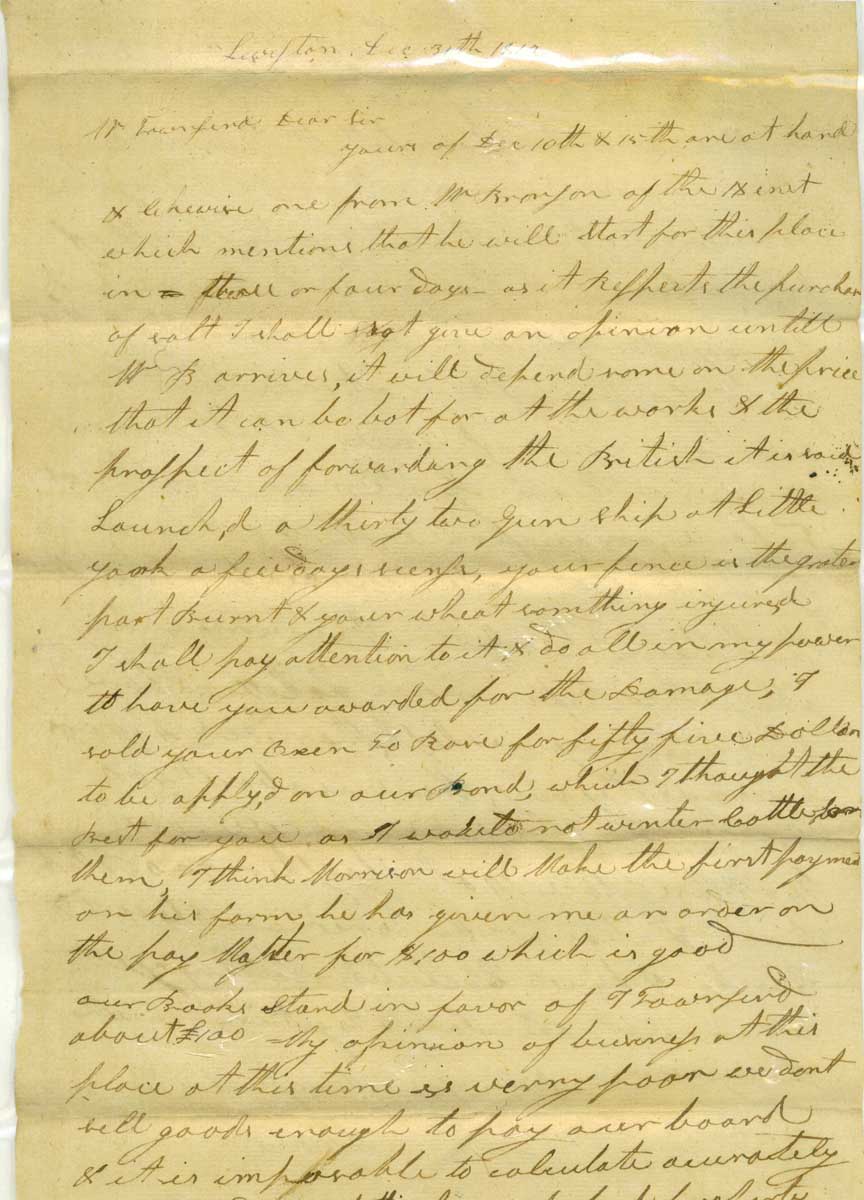 Lewiston Dec 31th
Mr Townsend Dear Sir
yours of Dec 10th & 15th are at hand
& likewise one from Mr Bronson of the 18 inst
which mentions that he will start for this place
in three or four days - as it Respects the purchas
of salt I shall not give an opinion untill
Mr B arrives, it will depend some on the price
that it can be bot for at the works & the
prospect of forwarding the British it is said
Launch,d a thirty two gun ship at Little
york a few days siens, your fence is the grater
part Burnt & your wheat somthing injured
I shall pay attention to it & do all in my power
to have you awarded for the Damage, I
sold your Oxen To for fifty five Dollars
to be apply,d on our Bond, which I thought the
Best for you as I not winter Cattle
them, I think Morrison will Make the first payment
on his farm he has given me an order on
the pay Master for $100 which is good
our Books Stand in favor of I Townsend
about £100 - My opinion of business at this
place at this time is verry poor we dont
sell goods enough to pay our board
& it is to calculate accurately